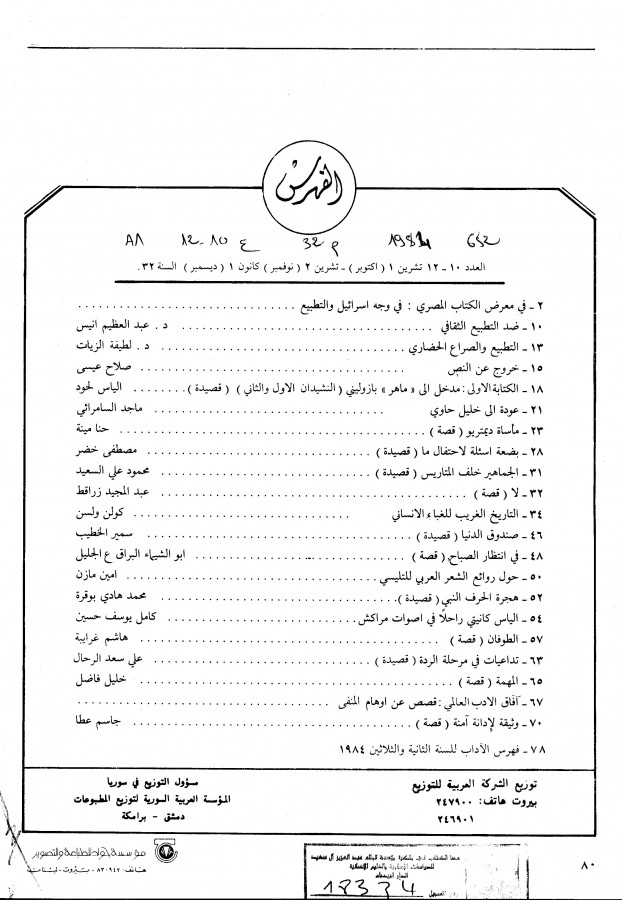 الفهرس
٨١ 12-10 ع 32 م 1984 652
العدد ١٠ - ١٢ تشرين ١ (اكتوبر) - تشرين ٢ (نوفمبر) كانون ١ (ديسمبر) السنة ٣٢.
٢ - في معرض الكتاب المصري : في وجه اسرائيل والتطبيع
١٠ - ضد التطبيع الثقافي د . عبد العظيم انيس
١٣ - التطبيع والصراع الحضاري د . لطيفة الزيات
١٥ - خروج عن النص صلاح عيسى
١٨ - الكتابة الاولى : مدخل الى « ماهر » بازوليني (النشيدان الاول والثاني) (قصيدة) الياس لحود
٢١ - عودة الى خليل حاوي ماجد السامرائي
٢٣ - مأساة ديمتريو (قصة) حنا مينة
٢٨ - بضعة اسئلة لاحتفال ما (قصيدة) مصطفى خضر
٣١ - الجماهير خلف المتاريس (قصيدة) محمود علي السعيد
٣٢ - لا (قصة) عبد المجيد زراقط
٣٤ - التاريخ الغريب للغباء الانساني كولن ولسن
٤٦ - صندوق الدنيا (قصيدة) سمير الخطيب
٤٨ - في انتظار الصباح (قصة) ابو الشيماء البراق ع الجليل
٥٠ - حول روائع الشعر العربي للتليسي امين مازن
٥٢ - هجرة الحرف النبي (قصيدة) محمد هادي بوقرة
٥٤ - الياس كانيتي راحلاً في اصوات مراكش كامل يوسف حسين
٥٧ - الطوفان (قصة) هاشم غرايبة
٦٣ - تداعيات في مرحلة الردة (قصيدة) علي سعد الرحال
٦٥ - المهمة (قصة) خليل فاضل
٦٧ - آفاق الادب العالمي : قصص عن اوهام المنفى
٧٠ - وثيقة لإدانة آمنة (قصة) جاسم عطا
٧٨ - فهرس الآداب للسنة الثانية والثلاثين ١٩٨٤
توزيع الشركة العربية للتوزيع
بيروت هاتف: ٢٤٧٩٠٠
٢٤٦٩٠١
مسؤول التوزيع في سوريا
المؤسسة العربية السورية لتوزيع المطبوعات
دمشق - برامكة
مؤسسة جواد للطباعة والتصوير
هاتف: ٨٣٠٩٤٢ - بيروت - لبنان
18334
٨٠